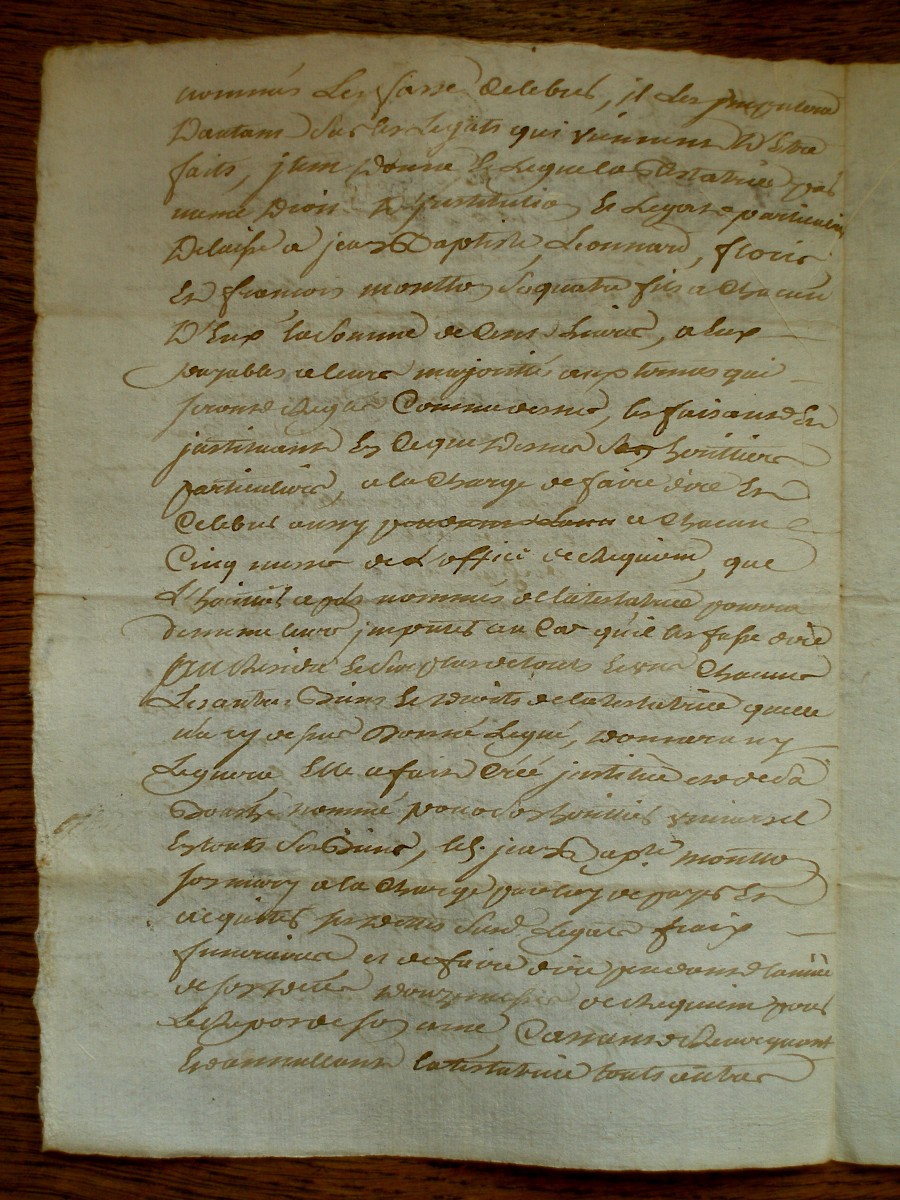 nommés les fasse celebrer, il les imputera
Dautant sur les Legats qui viennent D'Etre
faits, jtem donne & Legue la Testatrice par
meme Droit D'justitution & Legat particulier
Delaisse a jean Baptiste, Leonnard, floris
Et francois montton sesquatre fils a Chacun
D'Eux la somme de Cent Livres, a Eux
payables a leurs majorités aux termes qui
seront Regles Comme dessus, les faisant Et
justituant En Ce que Dessus ses heritiers
particuliers, a la Charge de faire dire Et
Celebrer aussy a Chacun
Cinq messes de L'office de Requiem, que
L'heritier apres nommés de la testatrice pourra
de meme leurs jmputer au Cas qu'il les fasse dire
Chacuns
Les autres Biens Et Droits de la testatrice quelle
n'a cy dessus Donné Legué, donnera ny
Leguera Elle a fait Créé justitué Et de sa
Bouche nommé pour son heritier universel
En touts ses Biens, led. jean Bapte montton
son mary a la Charge par luy de payer Et
acquitter ses dettes susd. Legats fraix
funeraires et de faire dire pendant l'année
de son deces douze messes de Requiem pour
Le Repos de son ame, Cassant Revocquant
Et annullant la testatrice touts autres